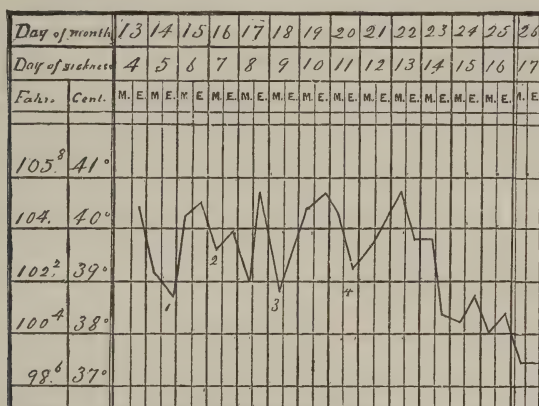 Day of month 13 14 15 16 17 18 19 20 21 22 23 24 25 26
Day of sickness 4 5 6 7 8 9 10 11 12 13 14 15 16 17
Fahr. Cent. M. E. M. E. M. E. M. E. M. E. M. E. M. E. M. E. M. E. M. E. M. E. M. E. M. E. M. E.
105.8 41°
104. 40°
2
102.2 39°
1 3 4
100.4 38°
98.6 37°